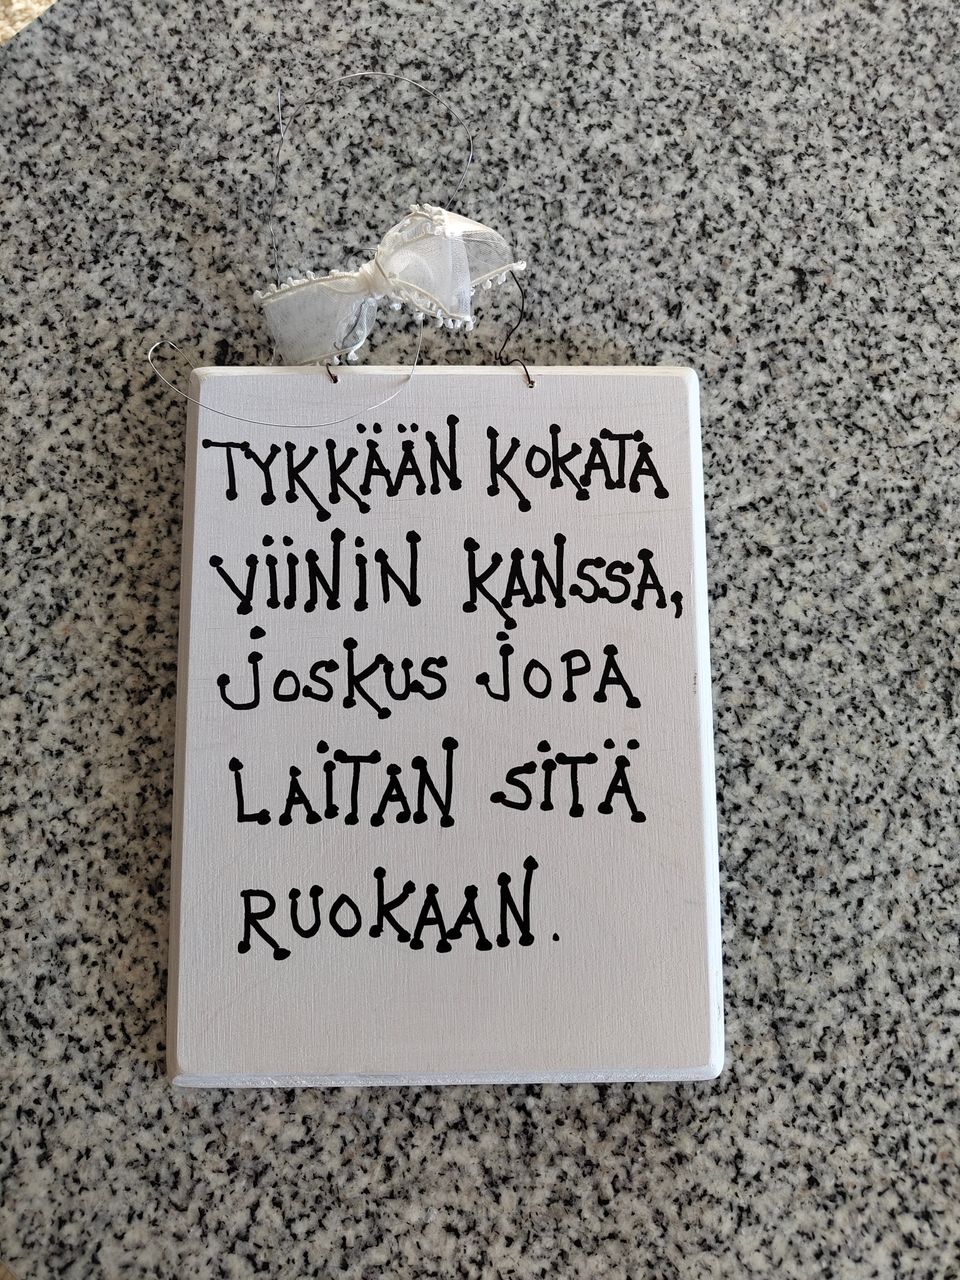 TYKKÄÄN KOKATA
VIININ KANSSA,
JOSKUS JOPA
LAITAN SITÄ
RUOKAAN.